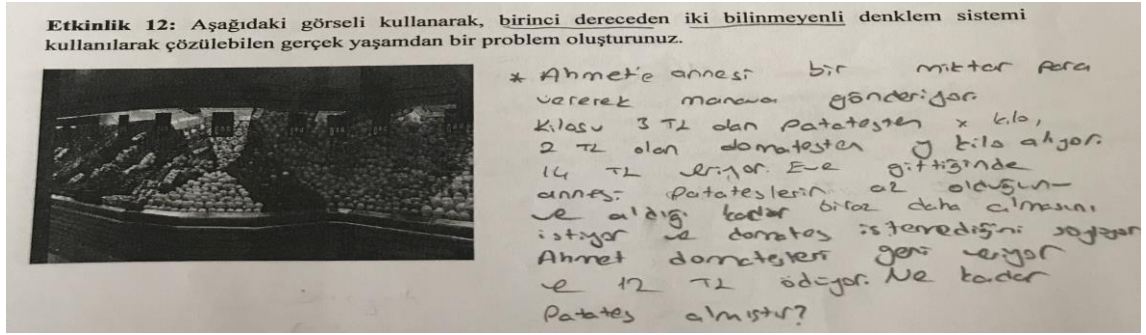 Etkinlik 12: Aşağıdaki görseli kullanarak, birinci dereceden iki bilinmeyenli denklem sistemi
kullanılarak çözülebilen gerçek yaşamdan bir problem oluşturunuz.
* Ahmet'e annesi bir miktar para
vererek manava gönderiyor.
Kilosu 3 TL olan Patatesten x kilo,
2 TL olan domatesten y kilo alıyor.
14 TL veriyor. Eve gittiğinde
annesi Patateslerin az olduğun-
ve aldığı kadar biraz daha almasını
istiyor ve domates istemediğini söylüyor
Ahmet domatesleri geri veriyor
ve 12 TL ödüyor. Ne kadar
Patates almıştır?